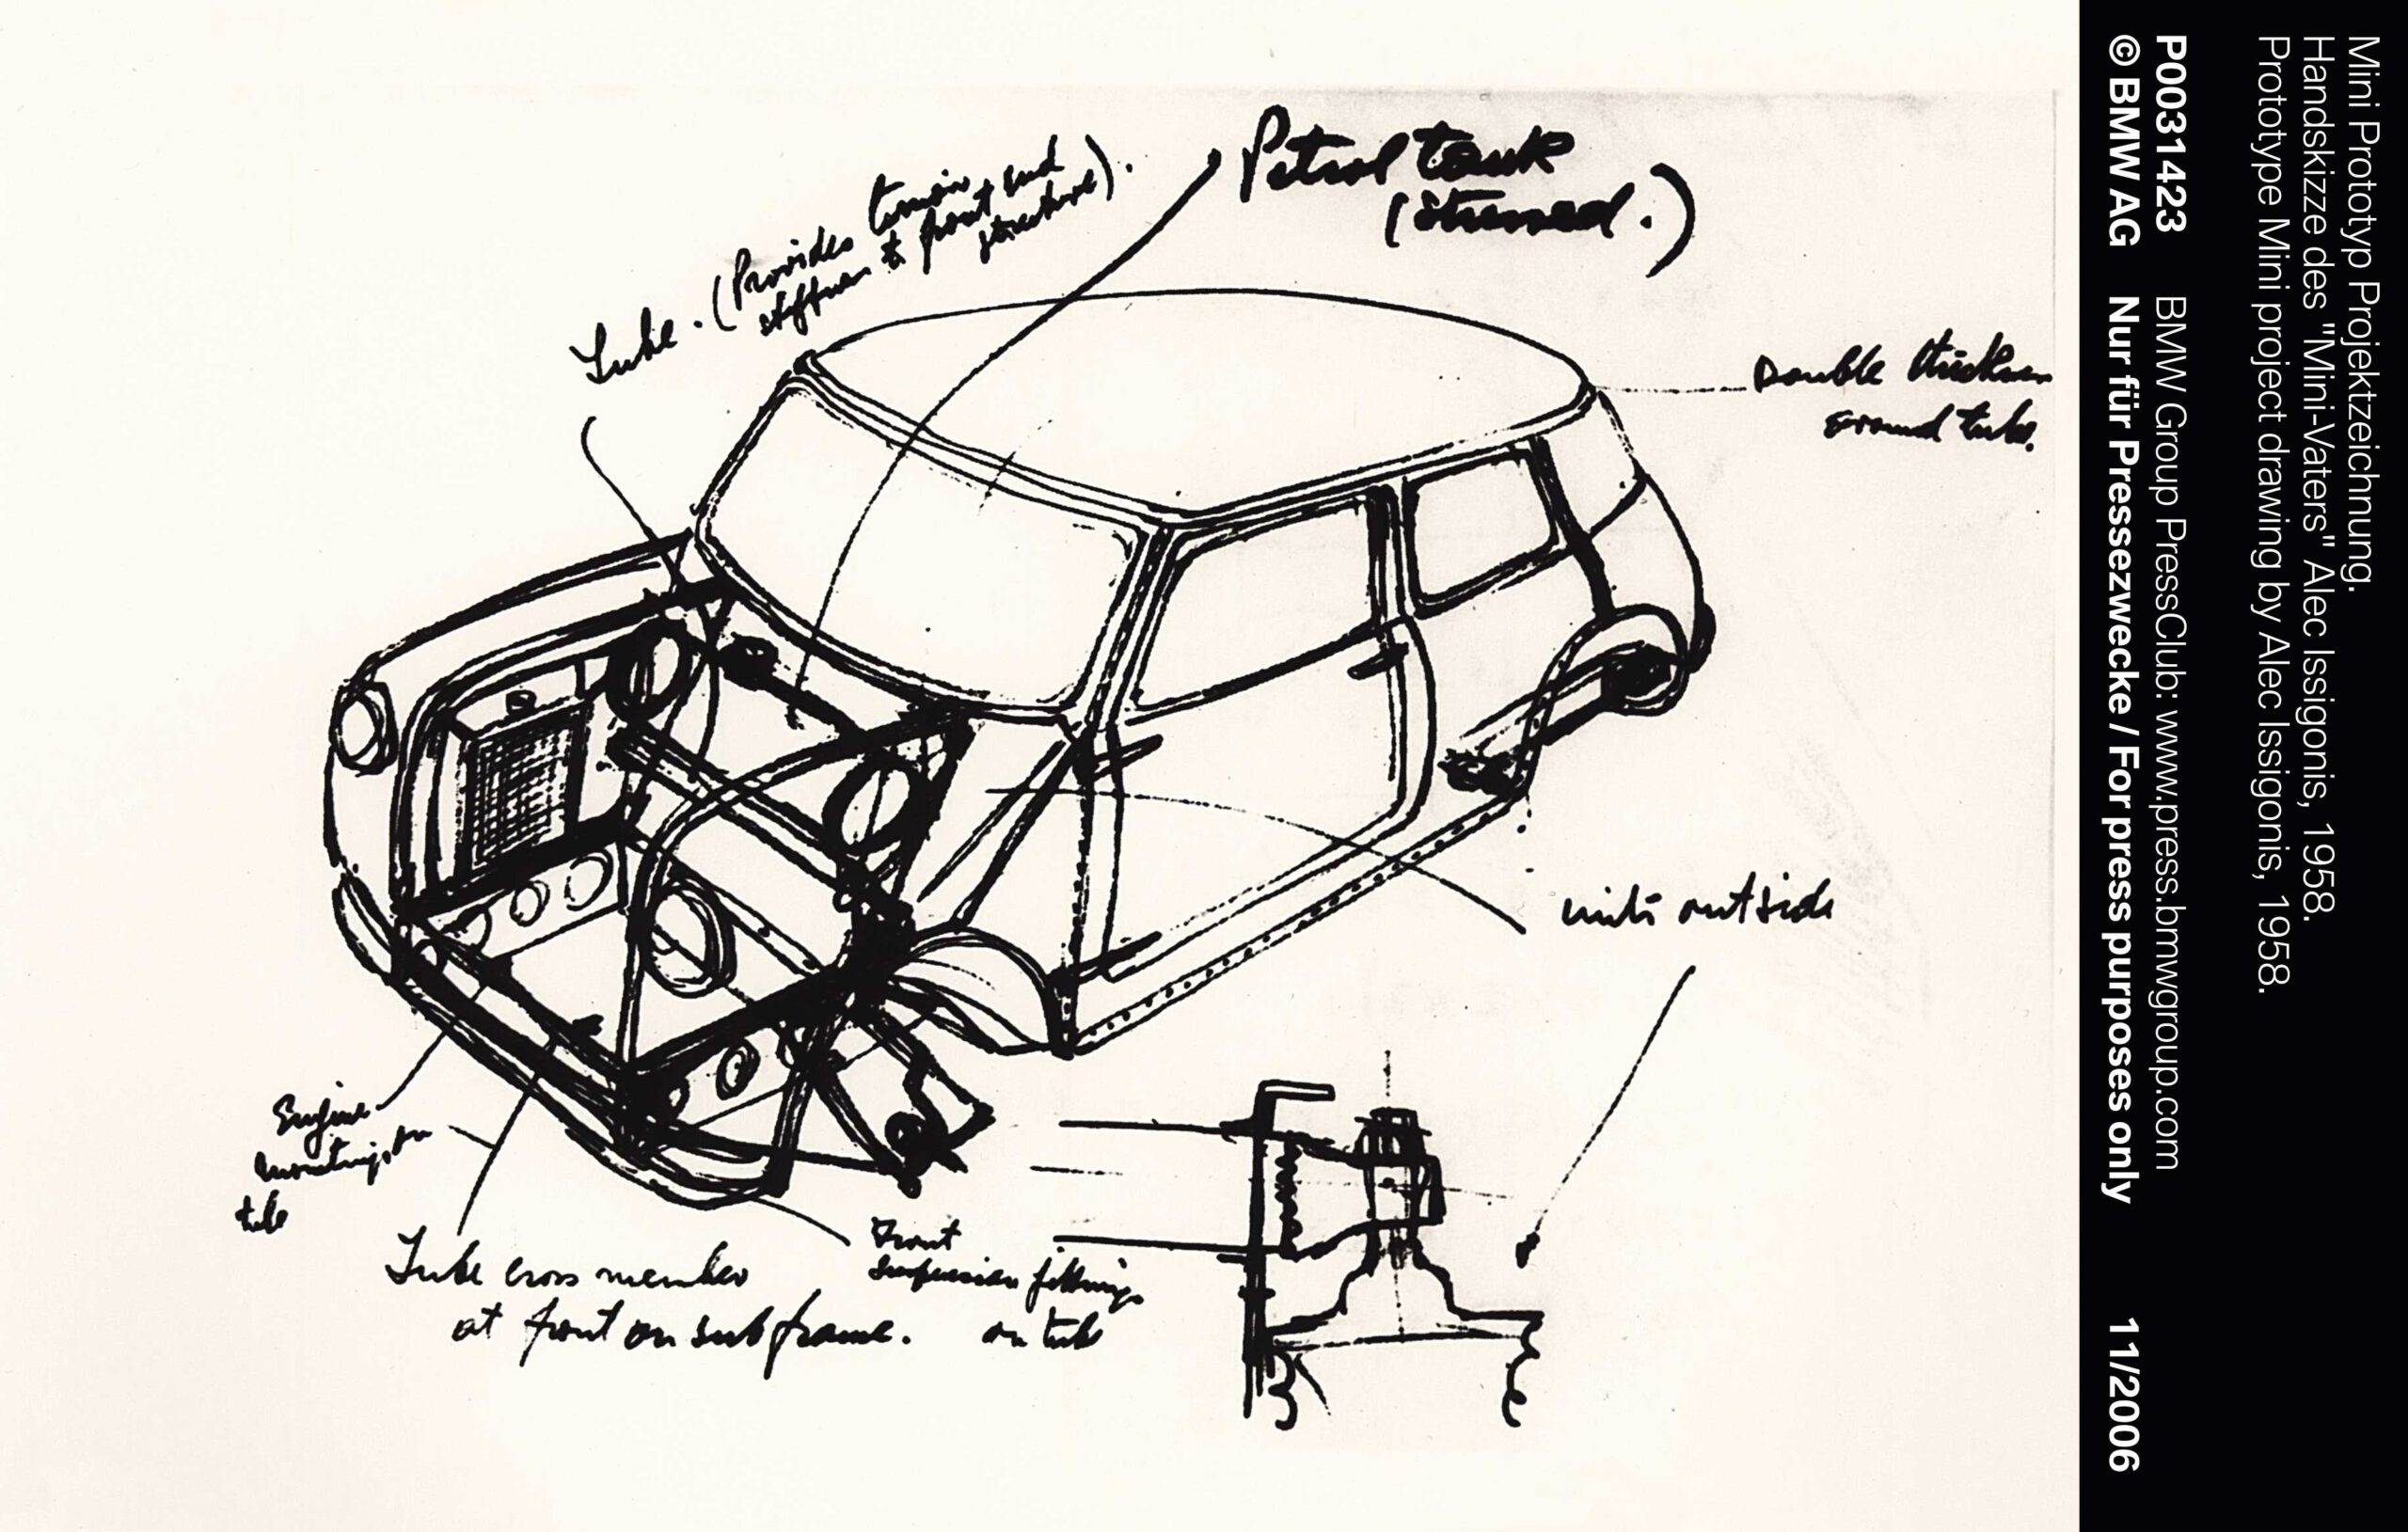 Petrol tank
(stressed.)
Tube. (Provides torsion and
stiffness to front
structure).
Double thickness
around tube.
units outside
Engine
mountings on
tube
Tube cross member
at front on subframe.
Front
suspension fittings
on tube
Mini Prototyp Projektzeichnung.
Handskizze des "Mini-Vaters" Alec Issigonis, 1958.
Prototype Mini project drawing by Alec Issigonis, 1958.
P0031423 BMW Group PressClub: www.press.bmwgroup.com
© BMW AG Nur für Pressezwecke / For press purposes only 11/2006